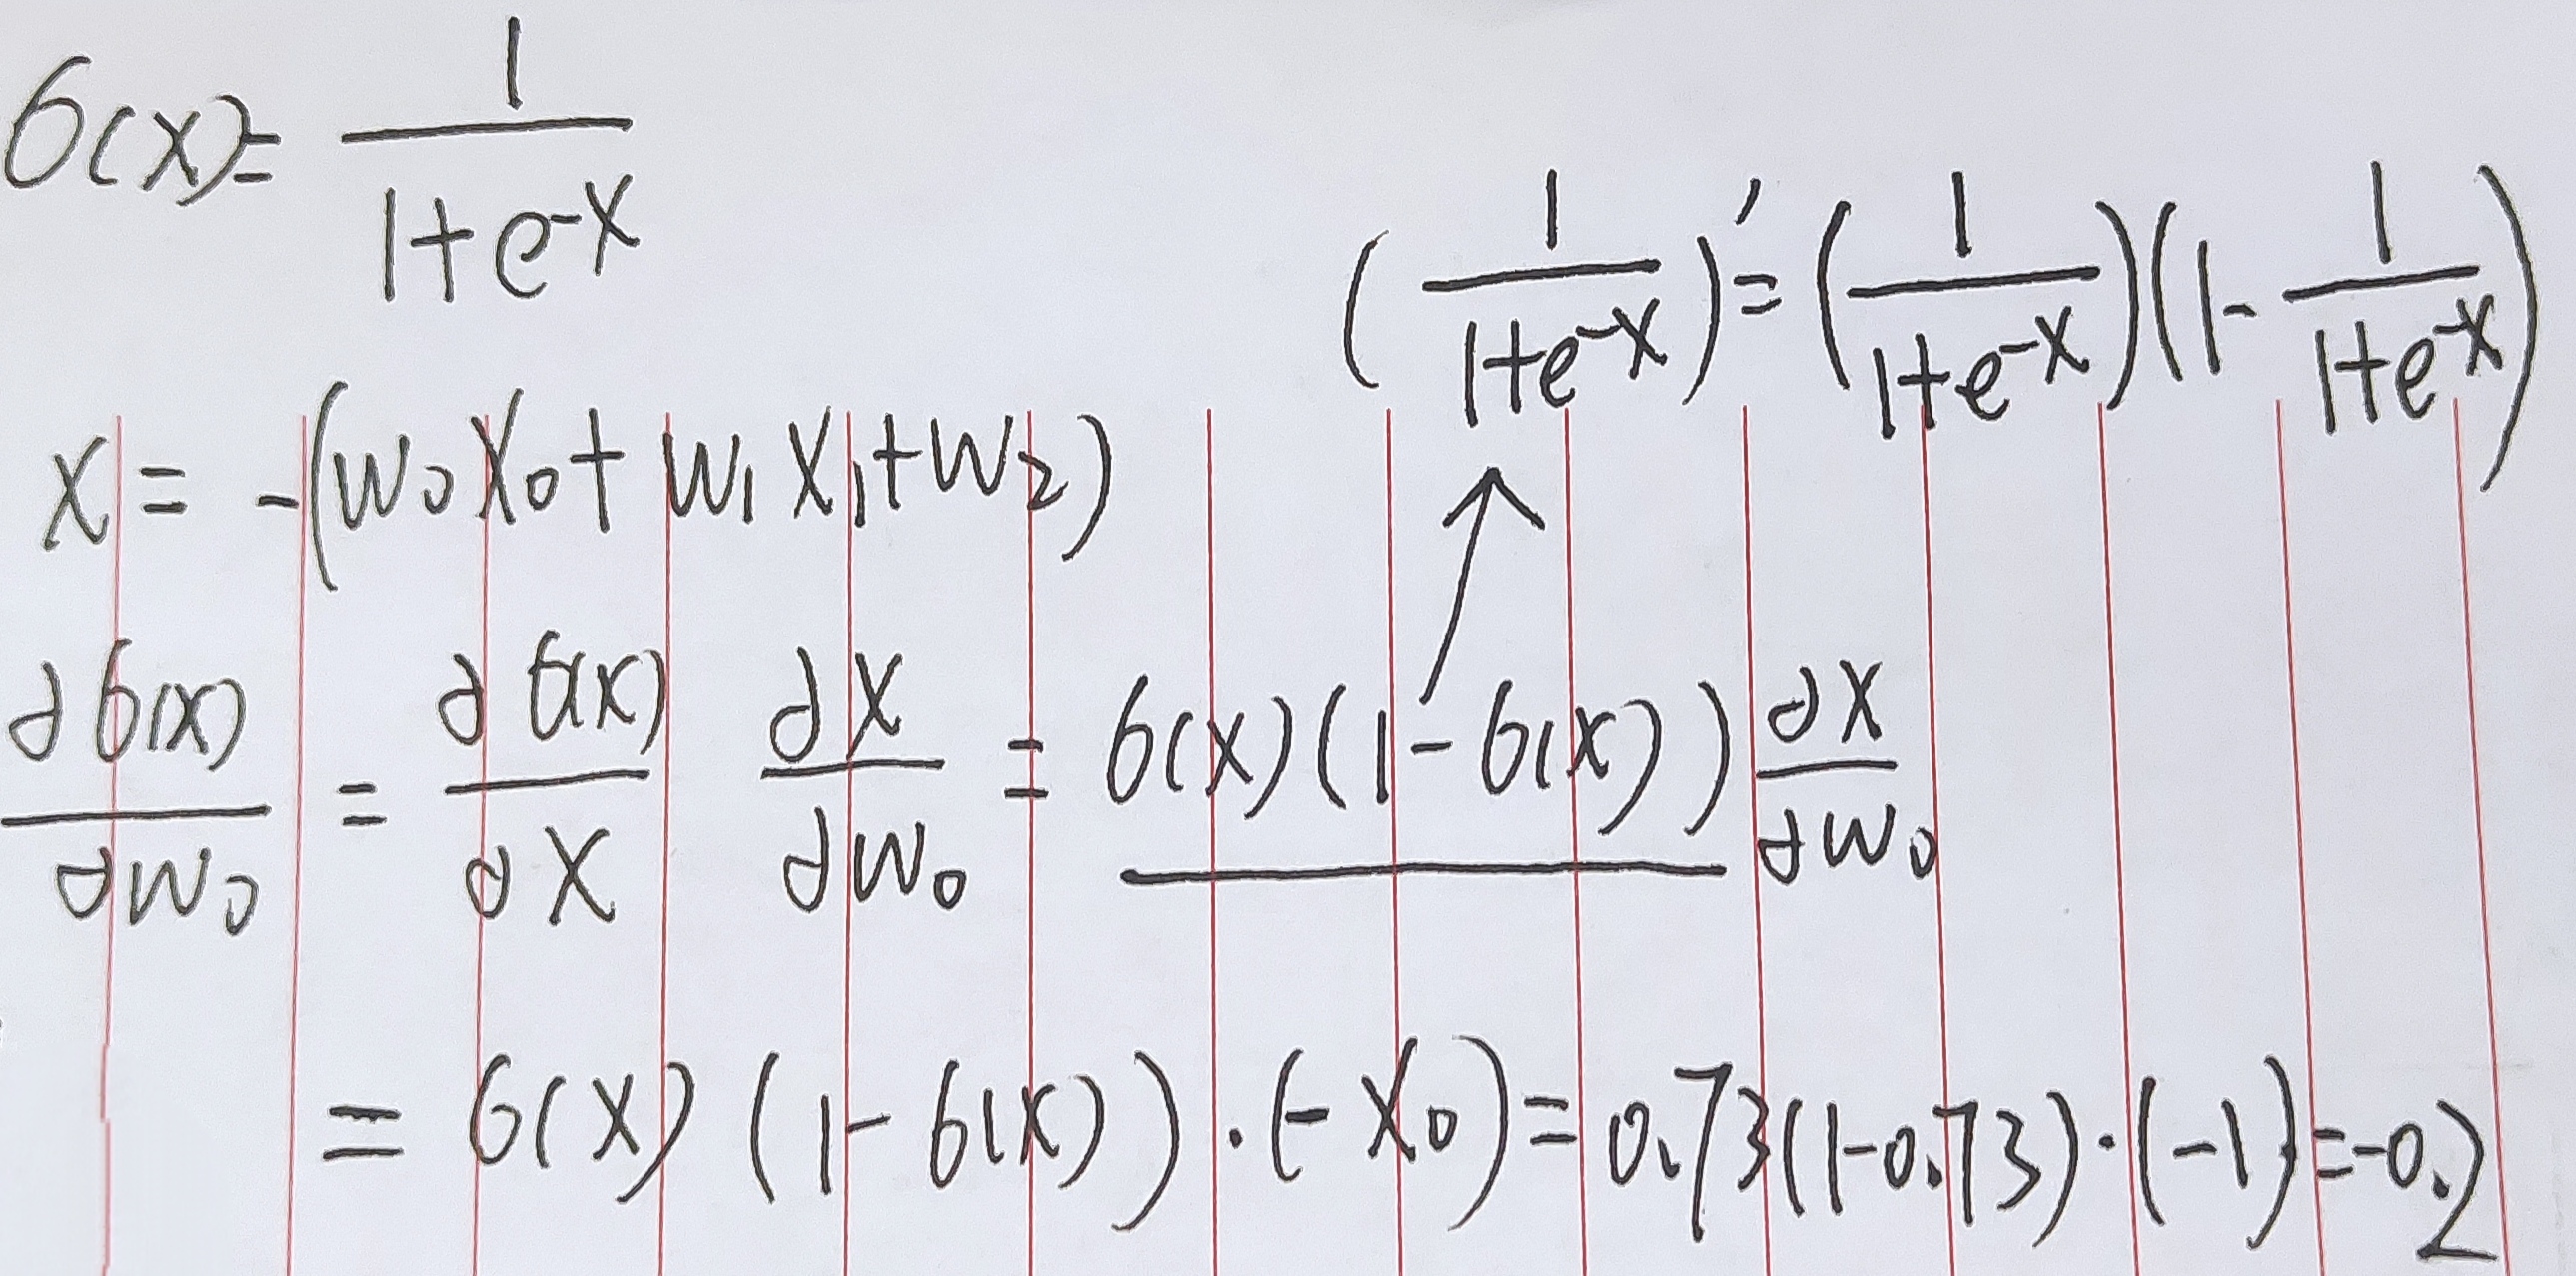 6(x)= 1/(1+e^-x)
(1/(1+e^-x))' = (1/(1+e^-x))(1- 1/(1+e^-x))
x = -(w₀x₀+w₁x₁+w₂)
∂6(x)/∂w₀ = ∂6(x)/∂x ∂x/∂w₀ = 6(x)(1-6(x)) ∂x/∂w₀
= 6(x)(1-6(x))·(-x₀)=0.73(1-0.73)·(-1)=-0.2